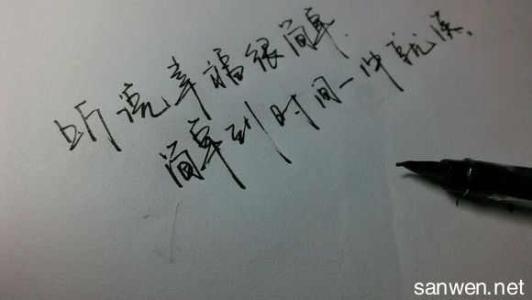 听说幸福很简单
简单到时间一冲就淡
sanwen.net